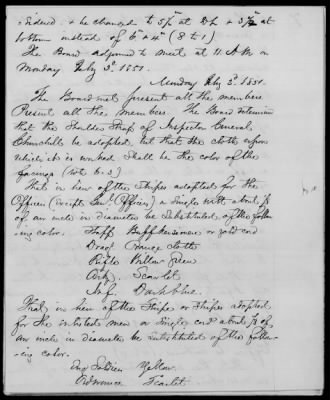 sidered: & be changed to 5½ at top & 3½ at
bottom instead of 6 & 4 (8 to 1)
The Board adjourned to meet at 11 A.M. on
Monday Feby 3d. 1851.
Monday Feby 3d. 1851.
The Board met present all the members
Present all the members. The Board determine
that the Shoulder Strap of Inspector General
Churchill be adopted, but that the cloth upon
which it is worked shall be the color of the
facings (vote 6. 3)
That in lieu of the stripes adopted for the
Officers (except Genl. Officers) a single welt about ⅛
of an inch in diameter be substituted of the follow
ing color. Staff Buff kersemere or gold cord
Drag. Orange cloth
Rifle Willow Green
Arty. Scarlet
Inf. Dark blue.
That in lieu of the Stripe or Stripes adopted
for the enlisted men a single cord about ⅛ of
an inch in diameter be substituted of the follow
ing color.
Eng Soldiers Yellow.
Ordnance Scarlet.